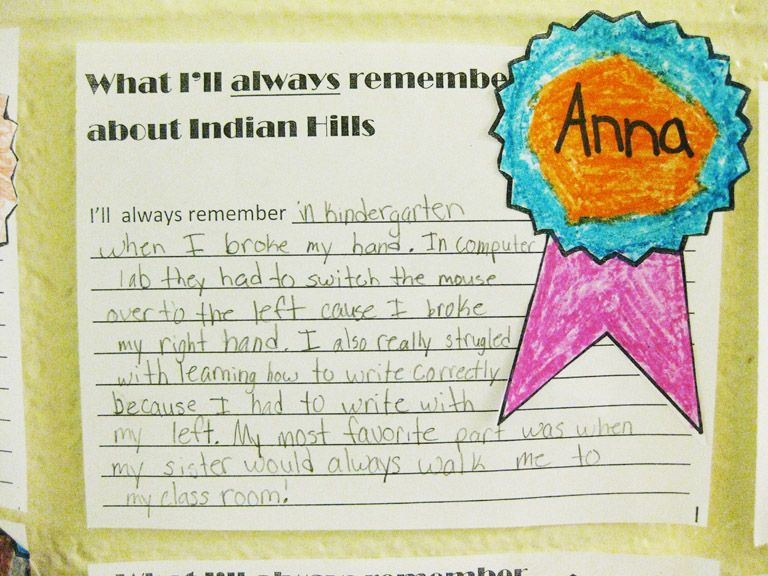 What I'll always remembe
about Indian Hills
Anna
I'll always remember in kindergarten
when I broke my hand. In computer
lab they had to switch the mouse
over to the left cause I broke
my right hand. I also really strugled
with learning how to write correctly
because I had to write with
my left. My most favorite part was when
my sister would always walk me to
my class room!
1
What I'll always remember